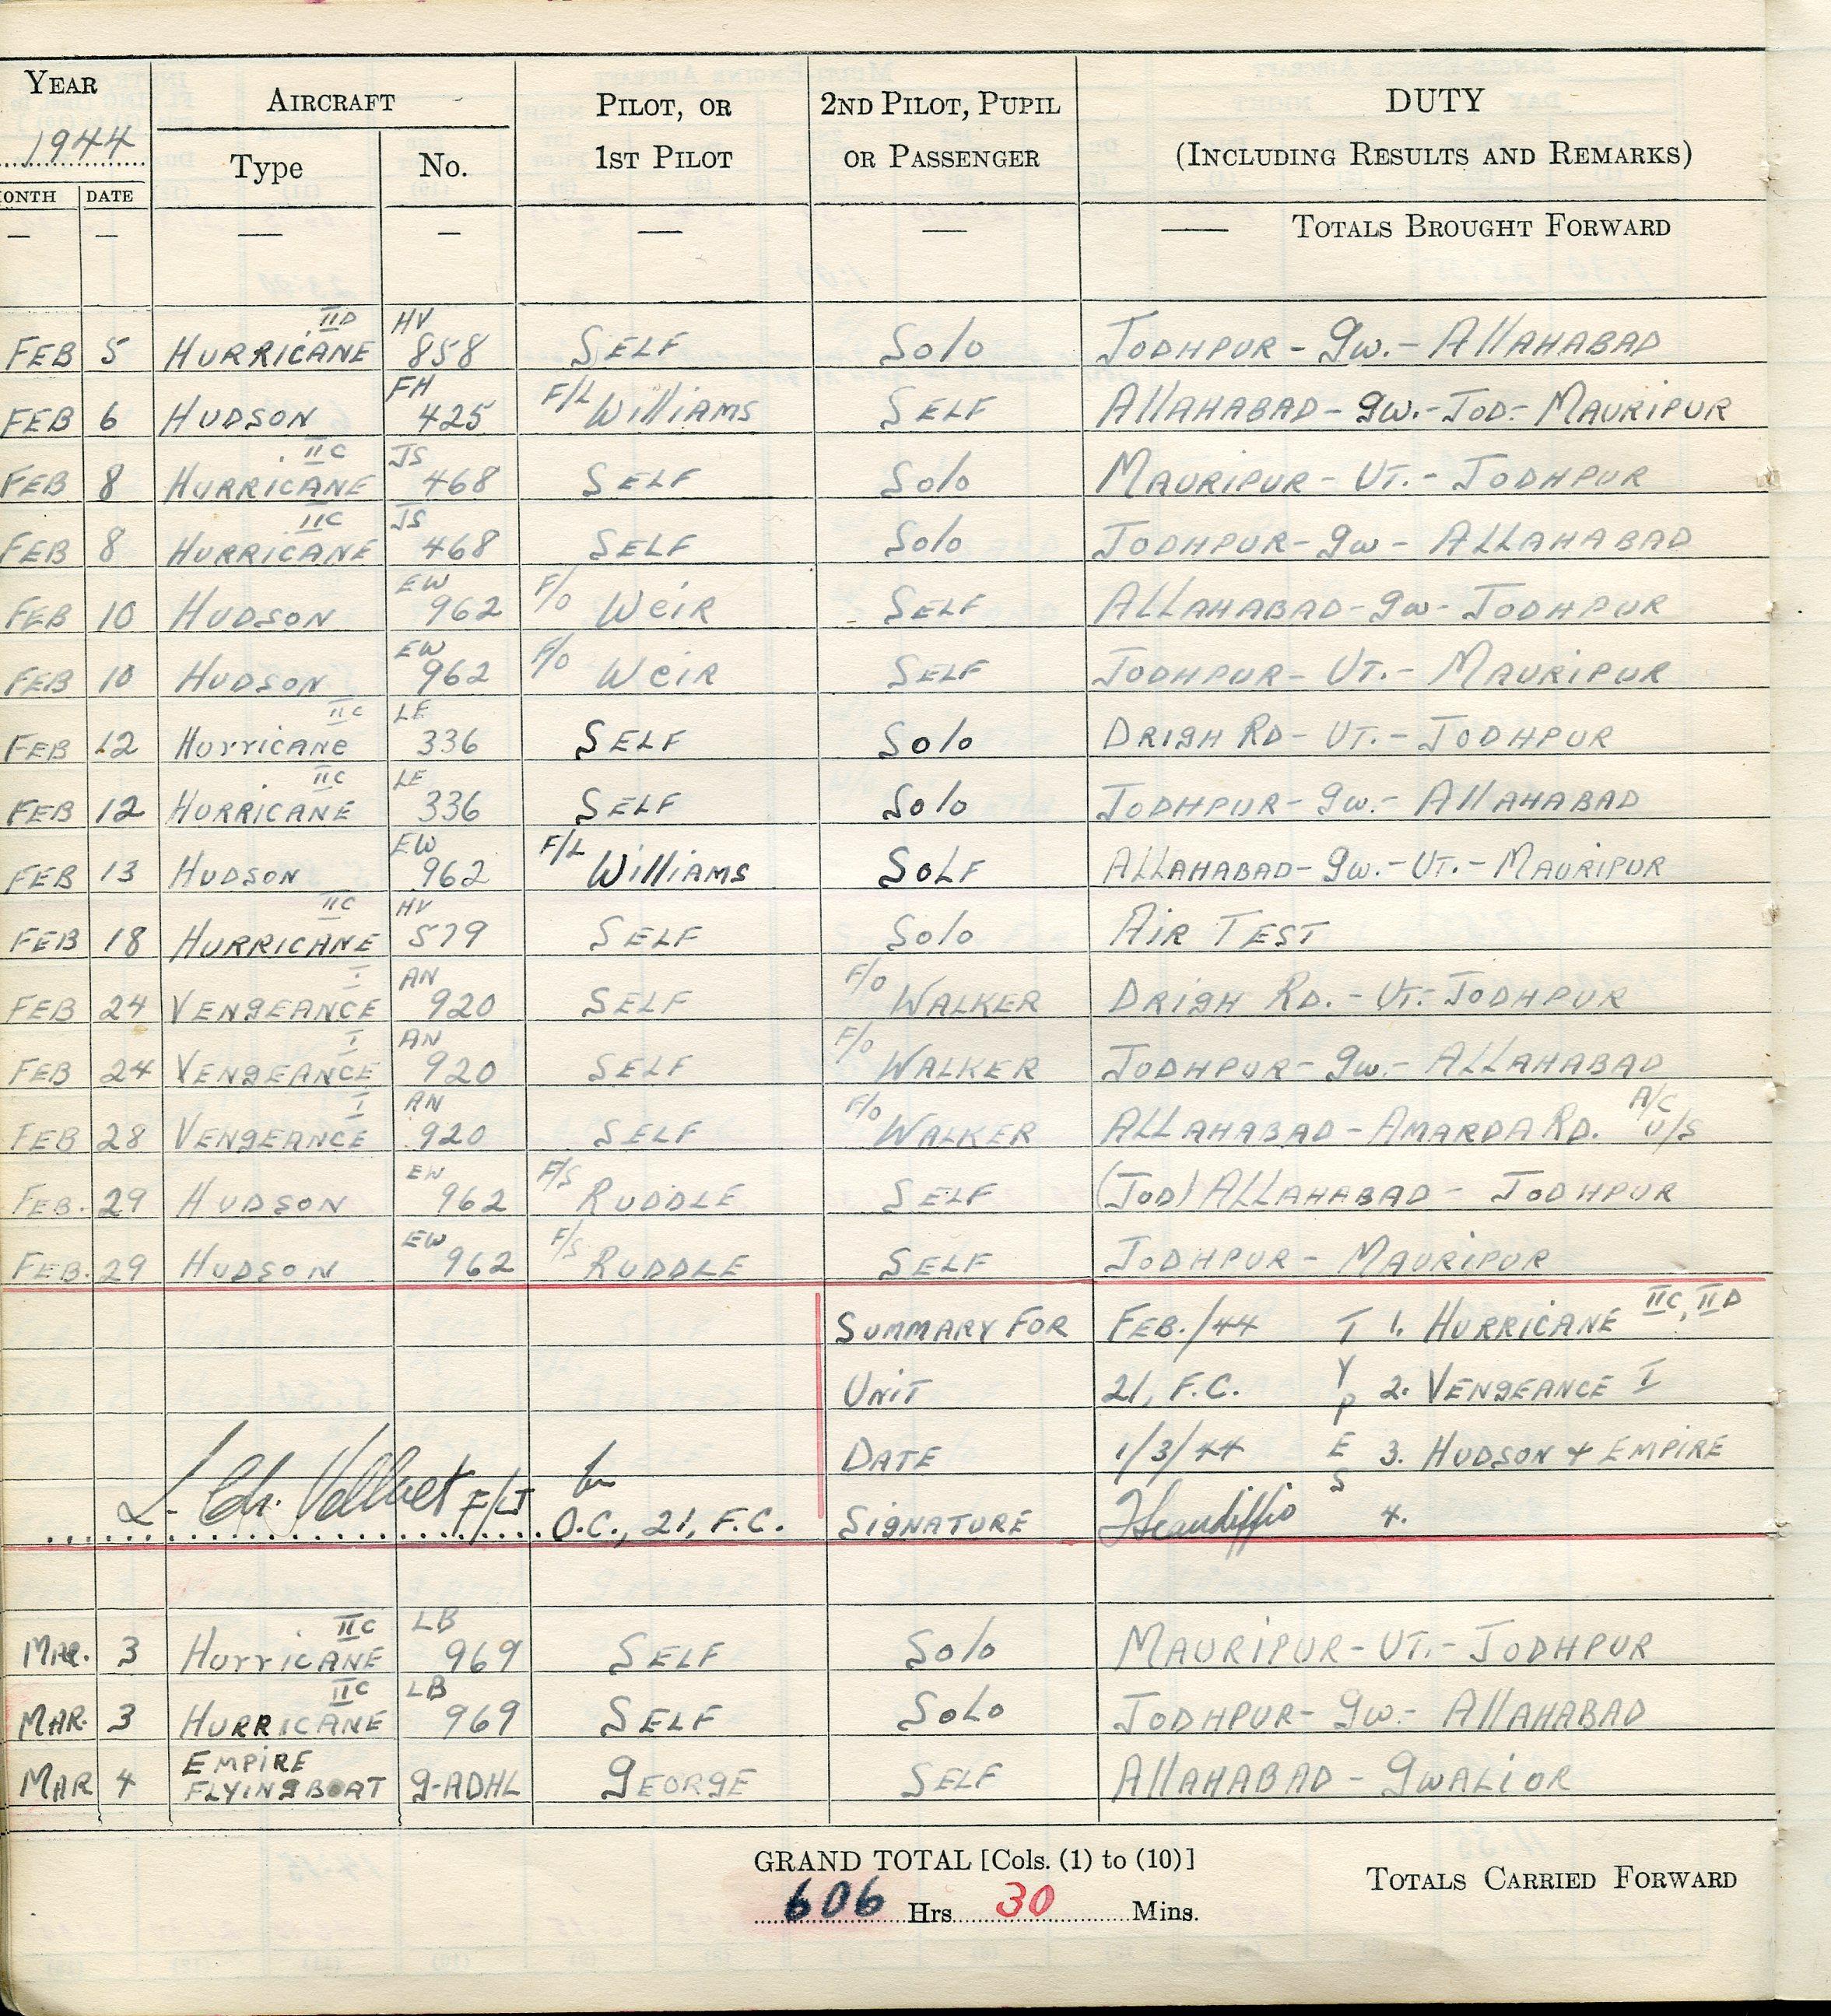 YEAR AIRCRAFT PILOT, OR 2ND PILOT, PUPIL DUTY
1944 Type No. 1ST PILOT OR PASSENGER (INCLUDING RESULTS AND REMARKS)
MONTH DATE
— — — — — — — TOTALS BROUGHT FORWARD
FEB 5 HURRICANE IID HV 858 SELF Solo JODHPUR - gw. - AllAHABAD
FEB 6 HUDSON FH 425 F/L WilliAMS SELF AllAHABAD - gw. - JOD. - MAURIPUR
FEB 8 HURRICANE IIC JS 468 SELF Solo MAURIPUR - UT. - JODHPUR
FEB 8 HURRICANE IIC JS 468 SELF Solo JODHPUR - gw - ALLAHABAD
FEB 10 HUDSON EW 962 F/O WeiR SELF ALLAHABAD - gw - JODHPUR
FEB 10 HUDSON EW 962 F/O WeiR SELF JODHPUR - UT. - MAURIPUR
FEB 12 Hurricane IIC LE 336 SELF Solo DRIgH RD - UT. - JODHPUR
FEB 12 HURRICANE IIC LE 336 SELF Solo JODHPUR - gw. - AllAHABAD
FEB 13 HUDSON EW 962 F/L WilliAMS SOLF ALLAHABAD - gw. - UT. - MAURIPUR
FEB 18 HURRICANE IIC HV 579 SELF Solo AIR TEST
FEB 24 VENgEANCE I AN 920 SELF F/O WALKER DRIgH RD. - UT. - JODHPUR
FEB 24 VENgEANCE I AN 920 SELF F/O WALKER JODHPUR - gw. - ALLAHABAD
FEB 28 VENgEANCE I AN 920 SELF F/O WALKER ALLAHABAD - AMARDA RD. A/C U/S
FEB. 29 HUDSON EW 962 F/S RUDDLE SELF (JOD) ALLAHABAD - JODHPUR
FEB. 29 HUDSON EW 962 F/S RUDDLE SELF JODHPUR - MAURIPUR
SUMMARY FOR FEB./44 T 1. HURRICANE IIC, IID
UNIT 21, F.C. Y P 2. VENgEANCE I
DATE 1/3/44 E 3. HUDSON + EMPIRE
F/LT for O.C., 21, F.C. SIgNATURE S 4.
MAR. 3 HurricANE IIC LB 969 SELF Solo MAURIPUR - UT. - JODHPUR
MAR. 3 HURRICANE IIC LB 969 SELF SOLO JODHPUR - gw. - AllAHABAD
MAR 4 EMPIRE FLYINgBOAT g-ADHL gEORgE SELF AllAHABAD - gWALIOR
GRAND TOTAL [Cols. (1) to (10)] TOTALS CARRIED FORWARD
606 Hrs. 30 Mins.